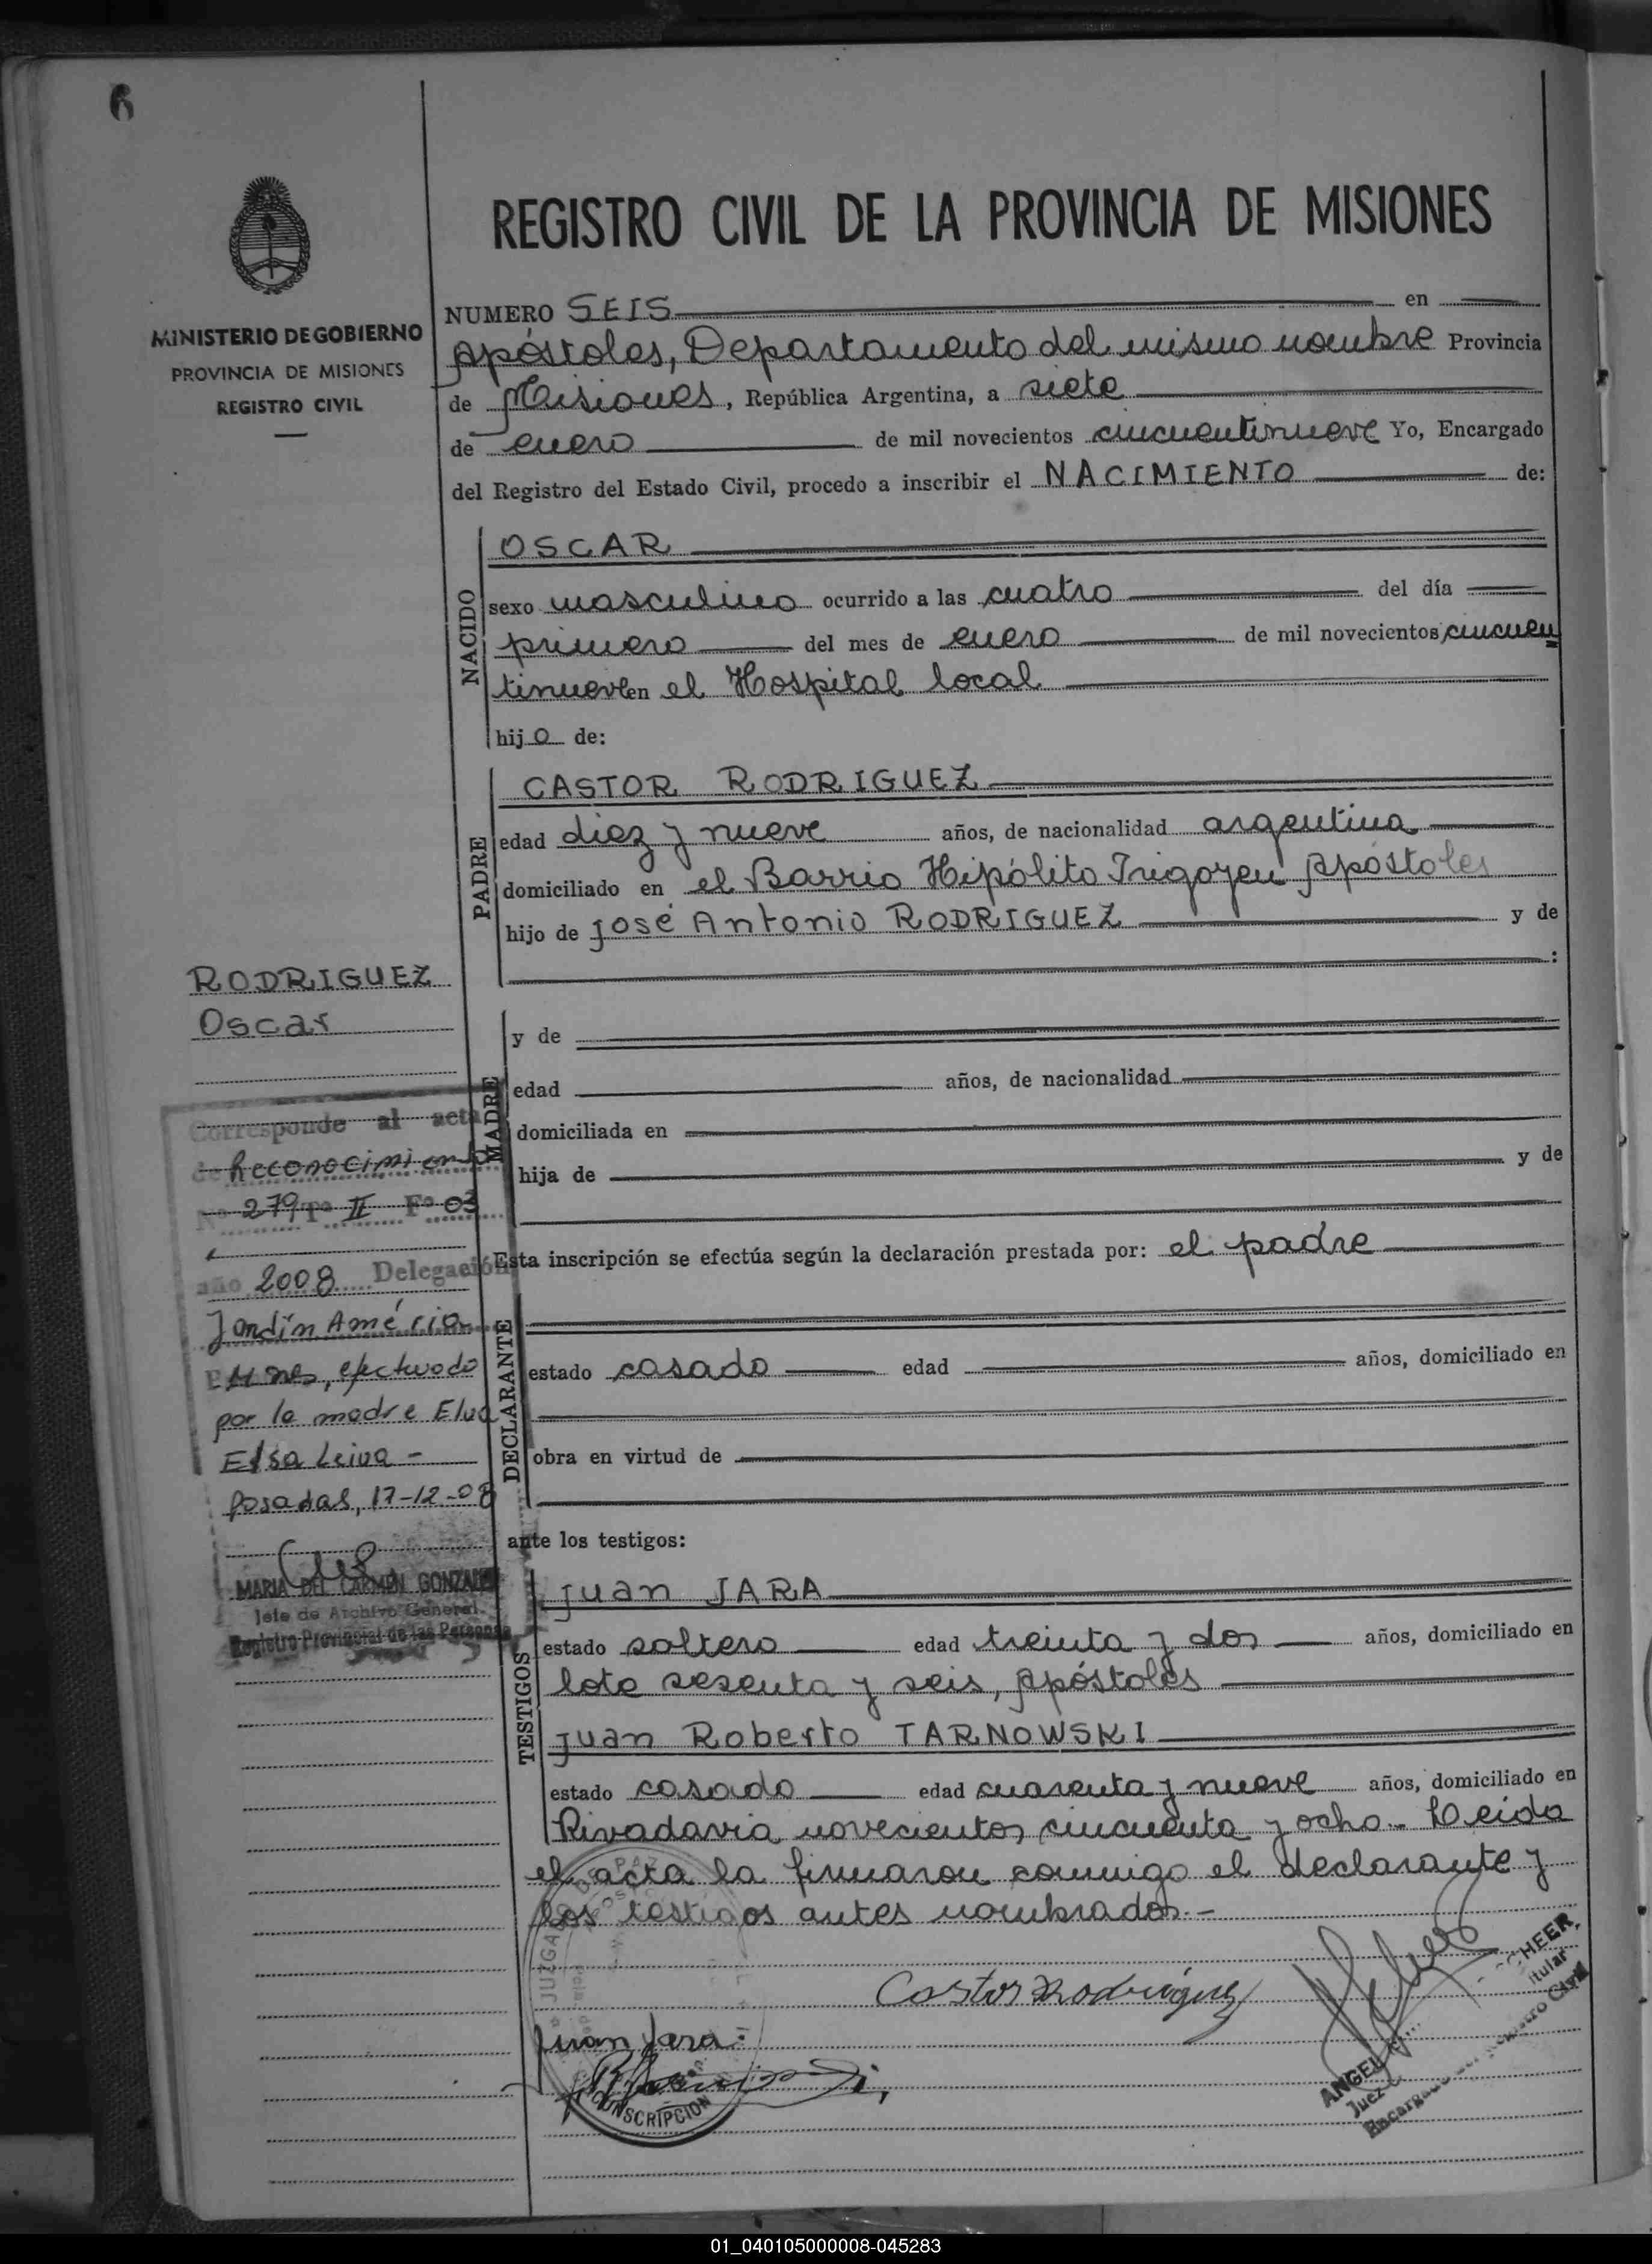 6
MINISTERIO DE GOBIERNO
PROVINCIA DE MISIONES
REGISTRO CIVIL
REGISTRO CIVIL DE LA PROVINCIA DE MISIONES
NUMERO SEIS en
Apóstoles, Departamento del mismo nombre Provincia
de Misiones, República Argentina, a siete
de enero de mil novecientos cincuentinueve Yo, Encargado
del Registro del Estado Civil, procedo a inscribir el NACIMIENTO de:
NACIDO
OSCAR
sexo masculino ocurrido a las cuatro del día
primero del mes de enero de mil novecientos cincuen
tinueve en el Hospital local
hijo de:
PADRE
CASTOR RODRIGUEZ
edad diez y nueve años, de nacionalidad argentina
domiciliado en el Barrio Hipólito Irigoyen Apóstoles
hijo de José Antonio RODRIGUEZ y de
:
MADRE
y de
edad años, de nacionalidad
domiciliada en
hija de y de
Esta inscripción se efectúa según la declaración prestada por: el padre
DECLARANTE
estado casado edad años, domiciliado en
obra en virtud de
ante los testigos:
TESTIGOS
Juan JARA
estado soltero edad treinta y dos años, domiciliado en
lote sesenta y seis, Apóstoles
Juan Roberto TARNOWSKI
estado casado edad cuarenta y nueve años, domiciliado en
Rivadavia novecientos cincuenta y ocho.. Leida
el acta la firmaron conmigo el declarante y
los testigos antes nombrados.-
Castor Rodriguez
Juan Jara
JUZGADO DE PAZ
CIRCUNSCRIPCION
ANGEL SCHEER
Juez Titular
Encargado del Registro Civil
RODRIGUEZ
Oscar
Corresponde al acta
de Reconocimiento
Nº 279 Tº II Fº 03
año 2008 Delegación
Jardín América
Mnes, efectuado
por la madre Elva
Elsa Leiva -
Posadas, 17-12-08
MARIA DEL CARMEN GONZALEZ
Jefe de Archivo General
Registro Provincial de las Personas
01_040105000008-045283